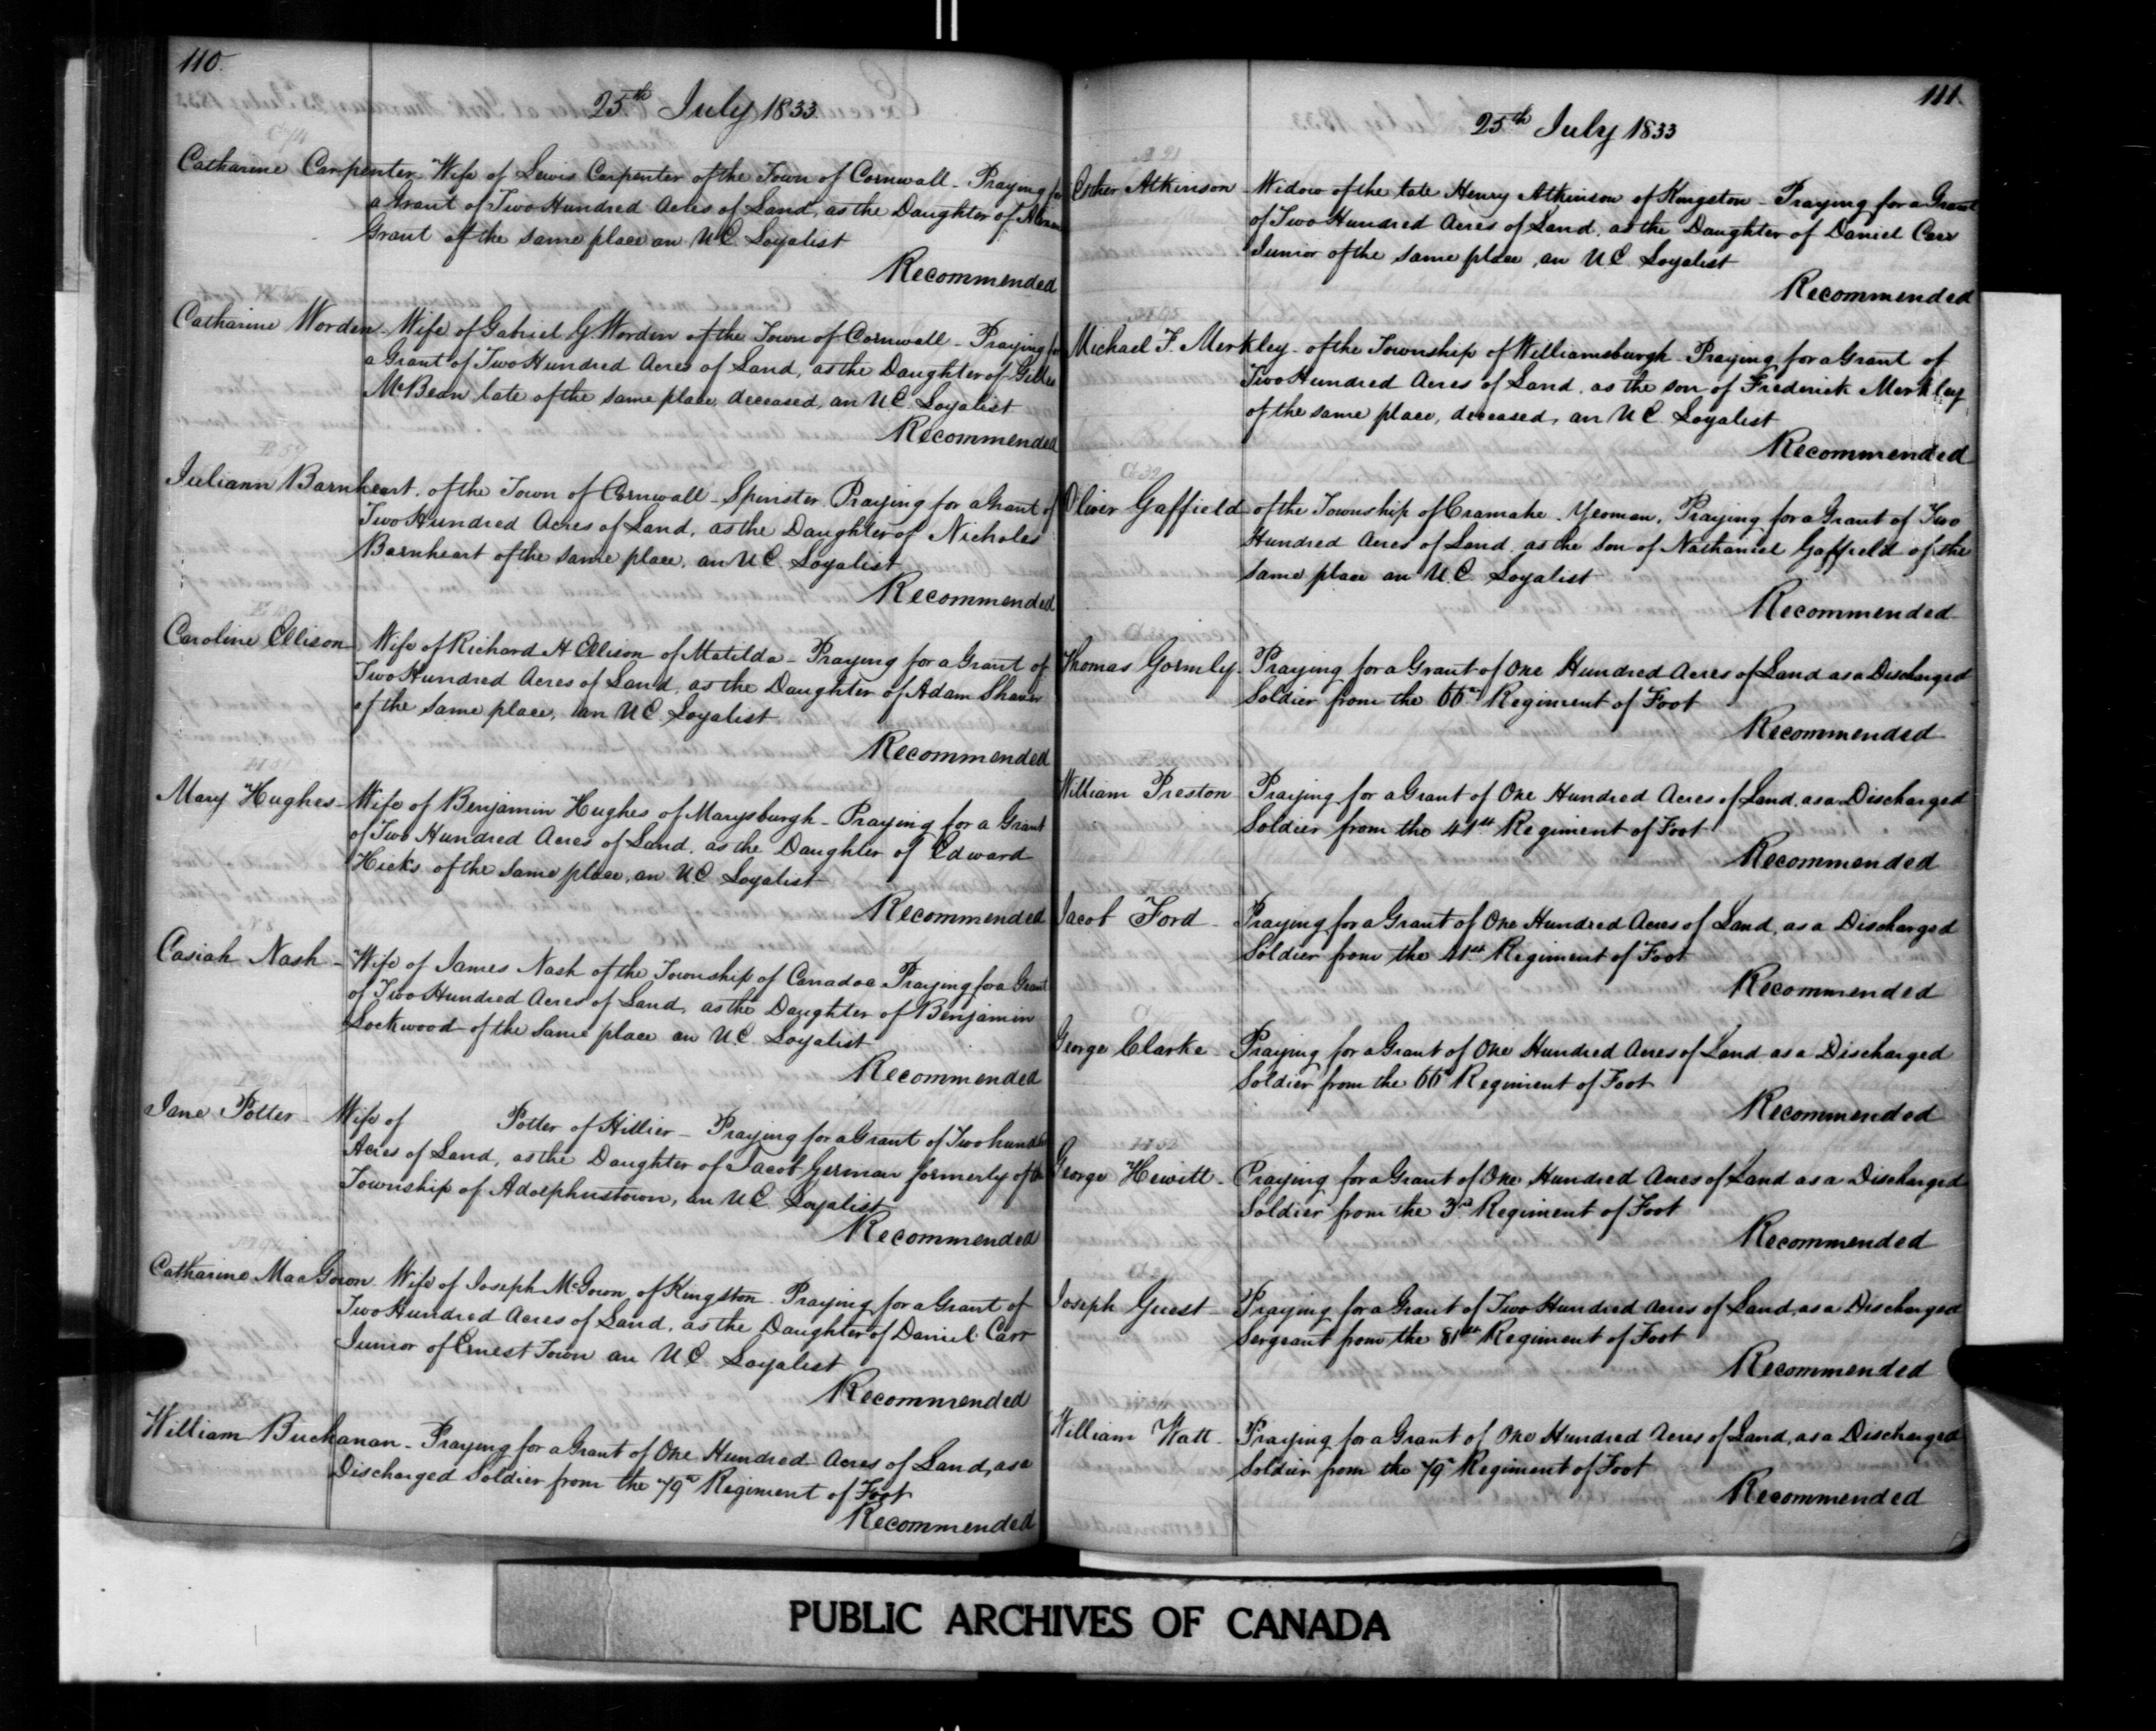 110.
25th July 1833.
C 14
Catharine Carpenter Wife of Lewis Carpenter of the Town of Cornwall - Praying for
a Grant of Two Hundred Acres of Land, as the Daughter of
Grant of the same place an U.C. Loyalist
Recommended
Catharine Worden - Wife of Gabriel G. Worden of the Town of Cornwall - Praying for
a Grant of Two Hundred Acres of Land, as the Daughter of Gilles
McBean late of the same place, deceased, an U.C. Loyalist
Recommended
B 57
Juliann Barnheart, of the Town of Cornwall - Spinster Praying for a Grant of
Two Hundred Acres of Land, as the Daughter of Nicholas
Barnheart of the same place, an U.C. Loyalist
Recommended
Caroline Ellison Wife of Richard H Ellison of Matilda - Praying for a Grant of
Two Hundred Acres of Land, as the Daughter of Adam Shaver
of the same place, an U.C. Loyalist
Recommended
H 51
Mary Hughes - Wife of Benjamin Hughes of Marysburgh - Praying for a Grant
of Two Hundred Acres of Land, as the Daughter of Edward
Hicks of the same place, an U.C. Loyalist
Recommended
N 8
Casiah Nash - Wife of James Nash of the Township of Canadoa Praying for a Grant
of Two Hundred Acres of Land, as the Daughter of Benjamin
Lockwood of the same place an U.C. Loyalist
Recommended
Jane Potter - Wife of Potter of Hillier - Praying for a Grant of Two hundred
Acres of Land, as the Daughter of Jacob German formerly of the
Township of Adolphustown, an U.C. Loyalist
Recommended
Catharine MacGown Wife of Joseph McGown of Kingston - Praying for a Grant of
Two Hundred Acres of Land, as the Daughter of Daniel Carr
Junior of Ernest Town an U.C. Loyalist
Recommended
William Buchanan - Praying for a Grant of One Hundred Acres of Land, as a
Discharged Soldier from the 79th Regiment of Foot
Recommended
111.
25th July 1833
Esther Atkinson - Widow of the late Henry Atkinson of Kingston - Praying for a Grant
of Two Hundred Acres of Land, as the Daughter of Daniel Carr
Junior of the same place, an U.C. Loyalist
Recommended
Michael F. Merkley - of the Township of Williamsburgh - Praying for a Grant of
Two Hundred Acres of Land, as the son of Frederick Merkley
of the same place, deceased, an U.C. Loyalist
Recommended
Oliver Gaffield of the Township of Cramahe - Yeoman, Praying for a Grant of Two
Hundred Acres of Land, as the Son of Nathaniel Gaffield of the
same place an U.C. Loyalist
Recommended
Thomas Gormly - Praying for a Grant of One Hundred Acres of Land as a Discharged
Soldier from the 66th Regiment of Foot
Recommended
William Preston - Praying for a Grant of One Hundred Acres of Land, as a Discharged
Soldier from the 41st Regiment of Foot
Recommended
Jacob Ford - Praying for a Grant of One Hundred Acres of Land, as a Discharged
Soldier from the 41st Regiment of Foot
Recommended
George Clarke - Praying for a Grant of One Hundred Acres of Land as a Discharged
Soldier from the 66th Regiment of Foot
Recommended
H 52
George Hewitt - Praying for a Grant of One Hundred Acres of Land as a Discharged
Soldier from the 3rd Regiment of Foot
Recommended
Joseph Guest - Praying for a Grant of Two Hundred Acres of Land, as a Discharged
Sergeant from the 81st Regiment of Foot
Recommended
William Watt - Praying for a Grant of One Hundred Acres of Land, as a Discharged
Soldier from the 79th Regiment of Foot
Recommended
PUBLIC ARCHIVES OF CANADA